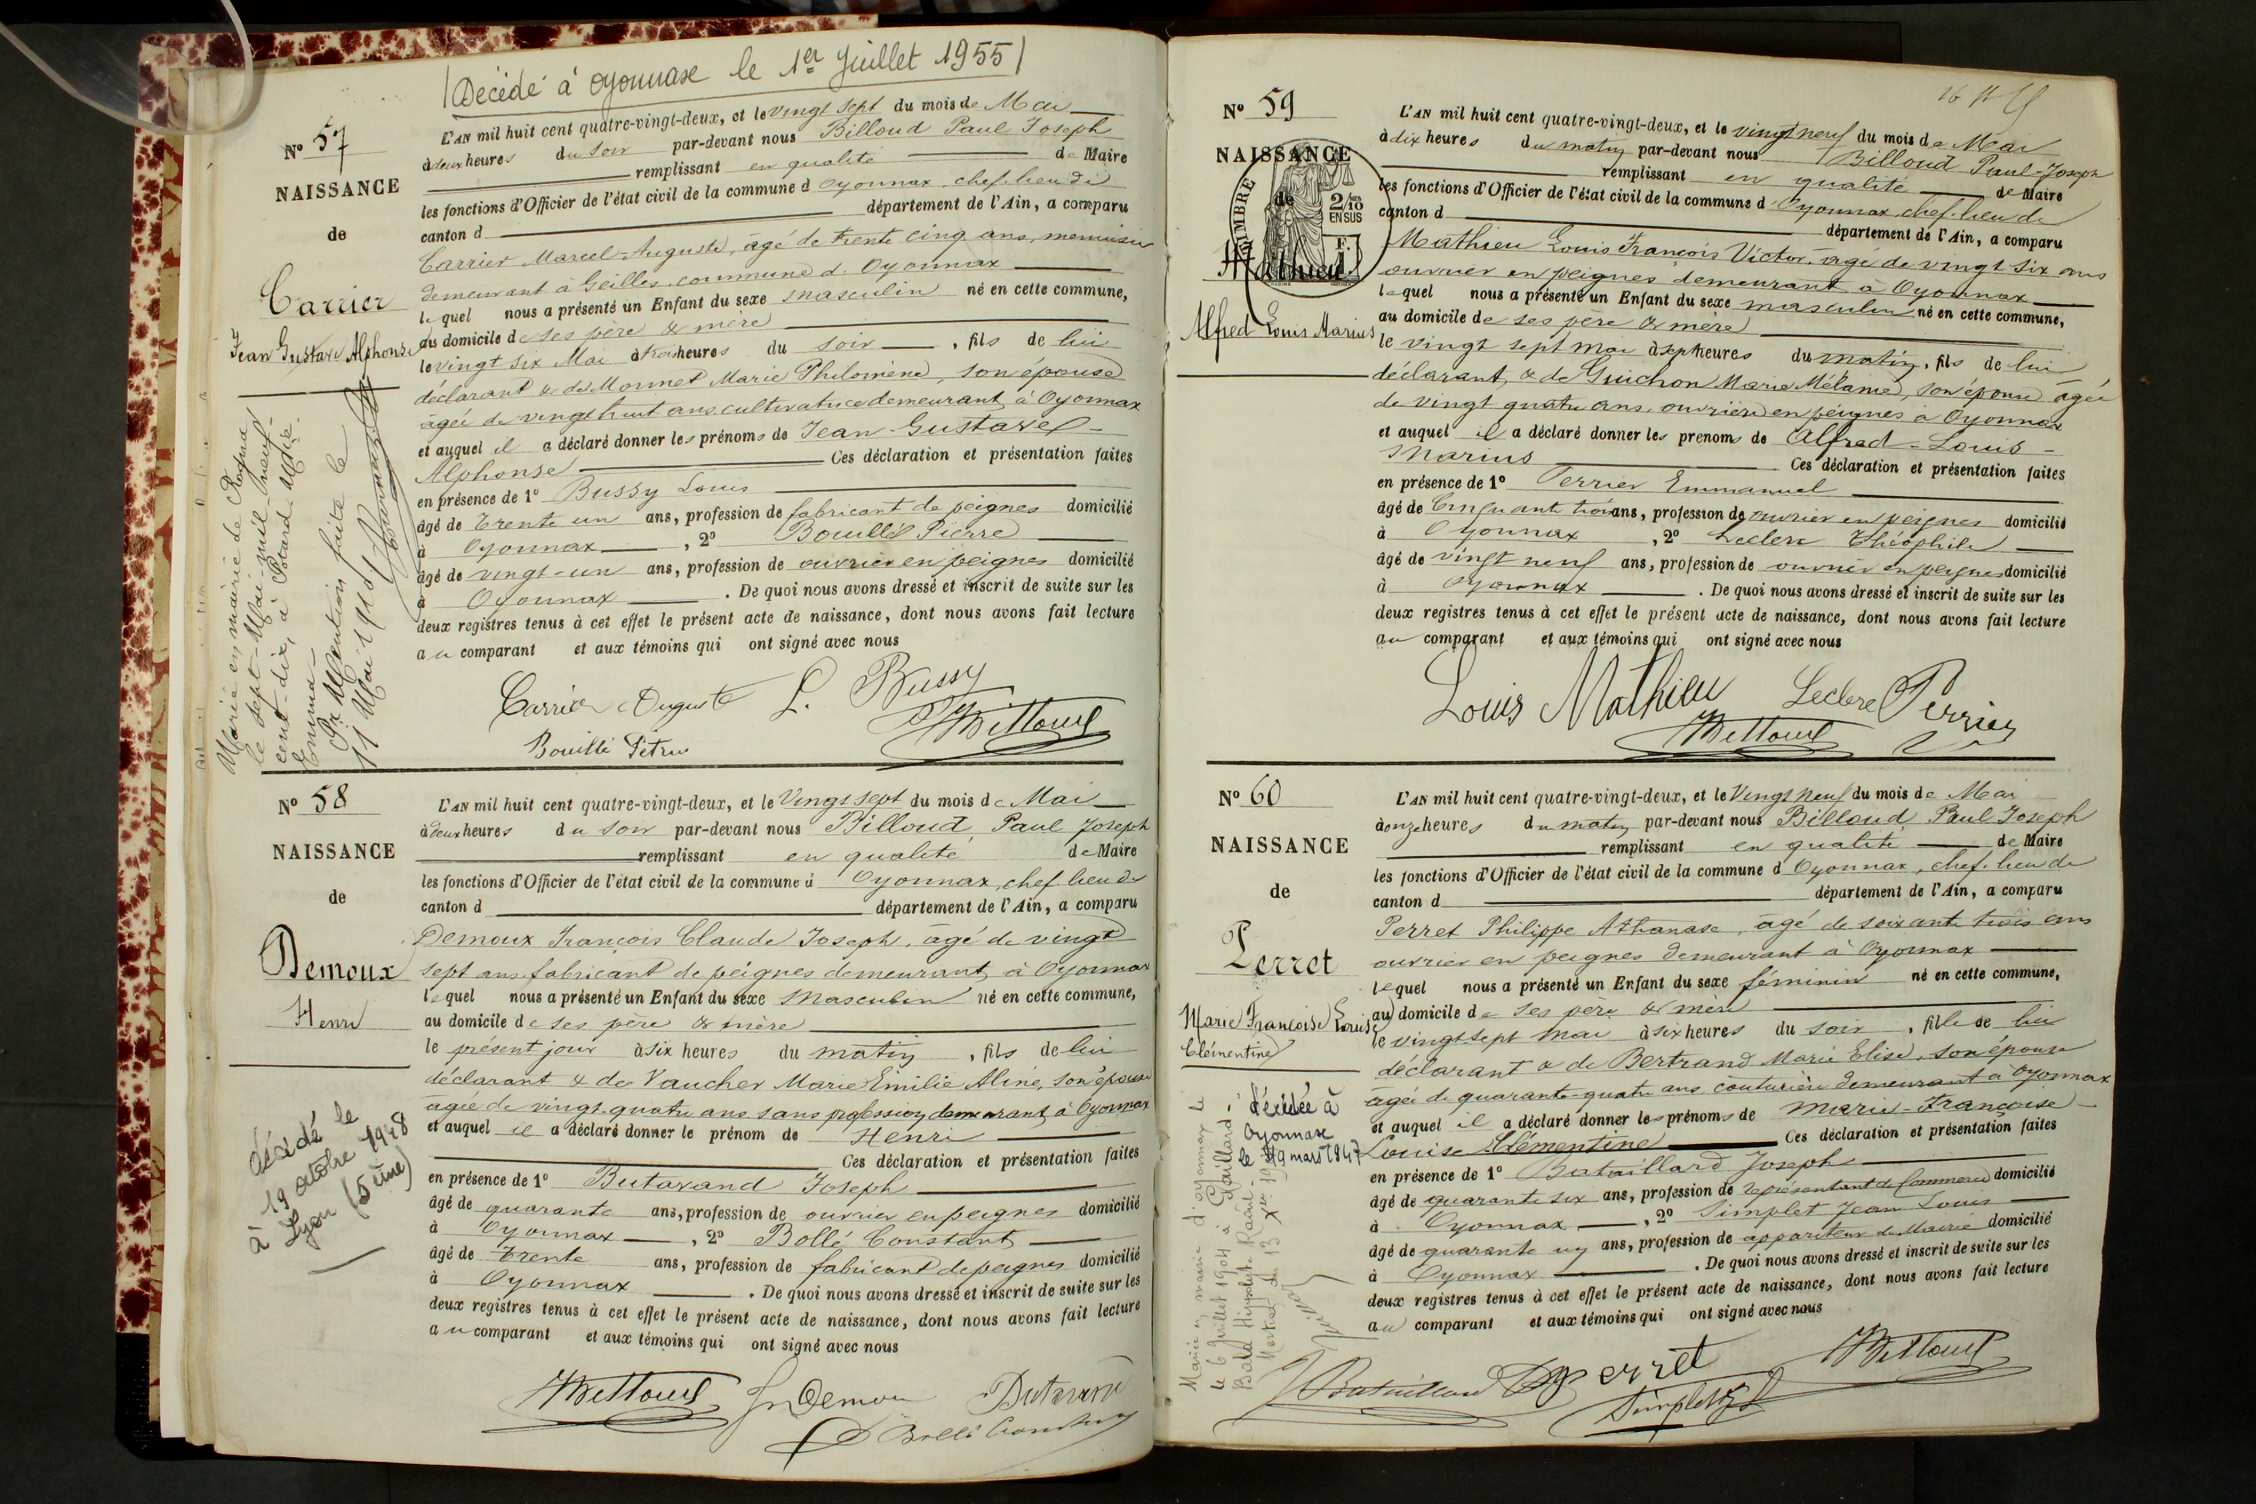 Décédé à Oyonnax le 1er Juillet 1955
No 57
NAISSANCE
de
Carrier
Jean Gustave Alphonse
Marié en mairie de
le sept Mai mil neuf
cent dix, à Potard Marie
Emma
Pr Mention faite le
11 Mai 1910
L'AN mil huit cent quatre-vingt-deux, et le vingt sept du mois de Mai
à deux heures du soir par-devant nous Billoud Paul Joseph
remplissant en qualité de Maire
les fonctions d'Officier de l'état civil de la commune d Oyonnax, chef-lieu de
canton d département de l'Ain, a comparu
Carrier Marcel-Auguste, âgé de trente cinq ans, menuisier
demeurant à Geilles, commune d. Oyonnax
lequel nous a présenté un Enfant du sexe masculin né en cette commune,
au domicile de ses père & mère
le vingt six Mai à trois heures du soir, fils de lui
déclarant & de Monnet Marie Philomène, son épouse
âgée de vingt huit ans cultivatrice demeurant à Oyonnax
et auquel il a déclaré donner les prénoms de Jean-Gustave-
Alphonse Ces déclaration et présentation faites
en présence de 1o Bussy Louis
âgé de trente un ans, profession de fabricant de peignes domicilié
à Oyonnax, 2o Bouillé Pierre
âgé de vingt-un ans, profession de ouvrier en peignes domicilié
à Oyonnax. De quoi nous avons dressé et inscrit de suite sur les
deux registres tenus à cet effet le présent acte de naissance, dont nous avons fait lecture
au comparant et aux témoins qui ont signé avec nous
Carrier Auguste L. Bussy
Bouillé Pétrus Billoud
No 58
NAISSANCE
de
Demoux
Henri
décédé le
19 octobre 1948
à Lyon (5ème)
L'AN mil huit cent quatre-vingt-deux, et le Vingt sept du mois de Mai
à deux heures du soir par-devant nous Billoud Paul Joseph
remplissant en qualité de Maire
les fonctions d'Officier de l'état civil de la commune d Oyonnax, chef lieu de
canton d département de l'Ain, a comparu
Demoux François Claude Joseph, âgé de vingt
sept ans fabricant de peignes demeurant à Oyonnax
lequel nous a présenté un Enfant du sexe Masculin né en cette commune,
au domicile de ses père & mère
le présent jour à six heures du matin, fils de lui
déclarant & de Vaucher Marie Emilie Aline, son épouse
âgée de vingt-quatre ans sans profession demeurant à Oyonnax
et auquel il a déclaré donner le prénom de Henri
Ces déclaration et présentation faites
en présence de 1o Butavand Joseph
âgé de quarante ans, profession de ouvrier en peignes domicilié
à Oyonnax, 2o Bollé Constant
âgé de trente ans, profession de fabricant de peignes domicilié
à Oyonnax. De quoi nous avons dressé et inscrit de suite sur les
deux registres tenus à cet effet le présent acte de naissance, dont nous avons fait lecture
au comparant et aux témoins qui ont signé avec nous
Billoud Demoux Butavand
Bollé Constant
No 59
NAISSANCE
de
TIMBRE
2/10
EN SUS
Mathieu
Alfred Louis Marius
L'AN mil huit cent quatre-vingt-deux, et le vingt neuf du mois de Mai
à dix heures du matin par-devant nous Billoud Paul-Joseph
remplissant en qualité de Maire
les fonctions d'Officier de l'état civil de la commune d Oyonnax, chef-lieu de
canton d département de l'Ain, a comparu
Mathieu Louis François Victor, âgé de vingt six ans
ouvrier en peignes demeurant à Oyonnax
lequel nous a présenté un Enfant du sexe masculin né en cette commune,
au domicile de ses père & mère
le vingt sept mai à sept heures du matin, fils de lui
déclarant, & de Guichon Marie Mélanie, son épouse âgée
de vingt quatre ans, ouvrière en peignes à Oyonnax
et auquel il a déclaré donner les prenoms de Alfred-Louis-
Marius Ces déclaration et présentation faites
en présence de 1o Perrier Emmanuel
âgé de Cinquante trois ans, profession de ouvrier en peignes domicilié
à Oyonnax, 2o Leclerc Théophile
âgé de vingt neuf ans, profession de ouvrier en peignes domicilié
à Oyonnax. De quoi nous avons dressé et inscrit de suite sur les
deux registres tenus à cet effet le présent acte de naissance, dont nous avons fait lecture
au comparant et aux témoins qui ont signé avec nous
Louis Mathieu Leclerc Perrier
Billoud
No 60
NAISSANCE
de
Perret
Marie Françoise Louise
Clémentine
décédée à
Oyonnax
Mariée en mairie d'Oyonnax le
le 6 Juillet 1904 à Gaillard
L'AN mil huit cent quatre-vingt-deux, et le Vingt neuf du mois de Mai
à onze heures du matin par-devant nous Billoud Paul Joseph
remplissant en qualité de Maire
les fonctions d'Officier de l'état civil de la commune d Oyonnax, chef-lieu de
canton d département de l'Ain, a comparu
Perret Philippe Athanase, âgé de soixante trois ans
ouvrier en peignes demeurant à Oyonnax
lequel nous a présenté un Enfant du sexe féminin né en cette commune,
au domicile de ses père & mère
le vingt-sept mai à six heures du soir, fille de lui
déclarant & de Bertrand Marie Elise, son épouse
âgée de quarante-quatre ans couturière demeurant à Oyonnax
et auquel il a déclaré donner les prénoms de Marie-Françoise-
Louise Clémentine Ces déclaration et présentation faites
en présence de 1o Bataillard Joseph
âgé de quarante six ans, profession de représentant de Commerce domicilié
à Oyonnax, 2o Simplet Jean Louis
âgé de quarante un ans, profession de appariteur de Mairie domicilié
à Oyonnax. De quoi nous avons dressé et inscrit de suite sur les
deux registres tenus à cet effet le présent acte de naissance, dont nous avons fait lecture
au comparant et aux témoins qui ont signé avec nous
Bataillard Perret Billoud
Simplet